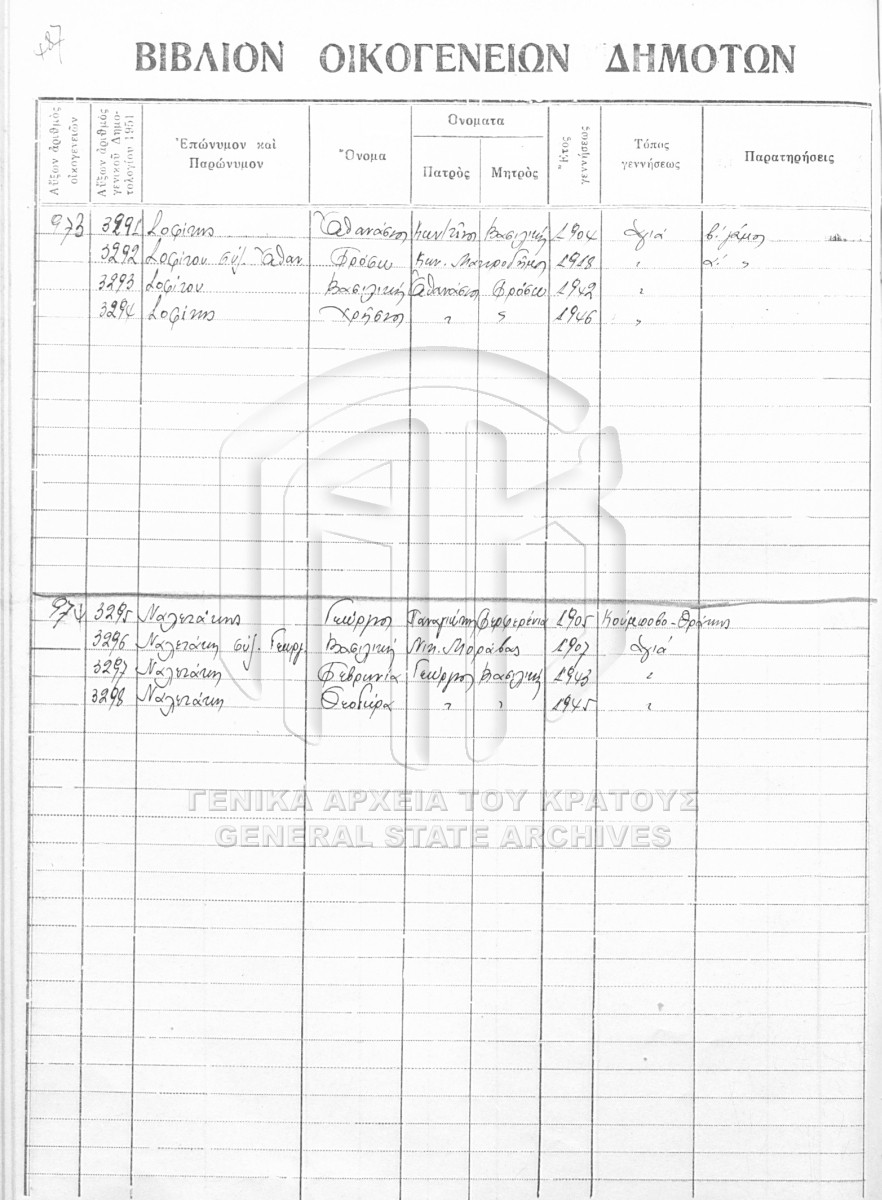 487
ΒΙΒΛΙΟΝ ΟΙΚΟΓΕΝΕΙΩΝ ΔΗΜΟΤΩΝ
Αὔξων ἀριθμὸς οἰκογενειῶν
Αὔξων ἀριθμὸς γενικοῦ Δημοτολογίου 1951
Ἐπώνυμον καὶ Παρώνυμον
Ὄνομα
Ὀνόματα
Πατρὸς
Μητρὸς
Ἔτος γεννήσεως
Τόπος γεννήσεως
Παρατηρήσεις
973 3291 Σοφίτης Ἀθανάσιος Κων/τῖνος Βασιλικὴ 1904 Ἁγιά β' γάμος
3292 Σοφίτου σύζ. Ἀθαν Φρόσω Κων. 1913 " α' "
3293 Σοφίτου Βασιλικὴ Ἀθανάσιος Φρόσω 1942 "
3294 Σοφίτης Χρῆστος " " 1946 "
974 3295 Ναλετάκης Γεώργιος Παναγιώτης 1905 Θράκης
3296 Ναλετάκη σύζ. Γεωργ. Βασιλικὴ Νικ. Μοράβας 1907 Ἁγιά
3297 Ναλετάκη Φεβρωνία Γεώργιος Βασιλικὴ 1943 "
3298 Ναλετάκη Θεοδώρα " " 1945 "
ΓΕΝΙΚΑ ΑΡΧΕΙΑ ΤΟΥ ΚΡΑΤΟΥΣ
GENERAL STATE ARCHIVES